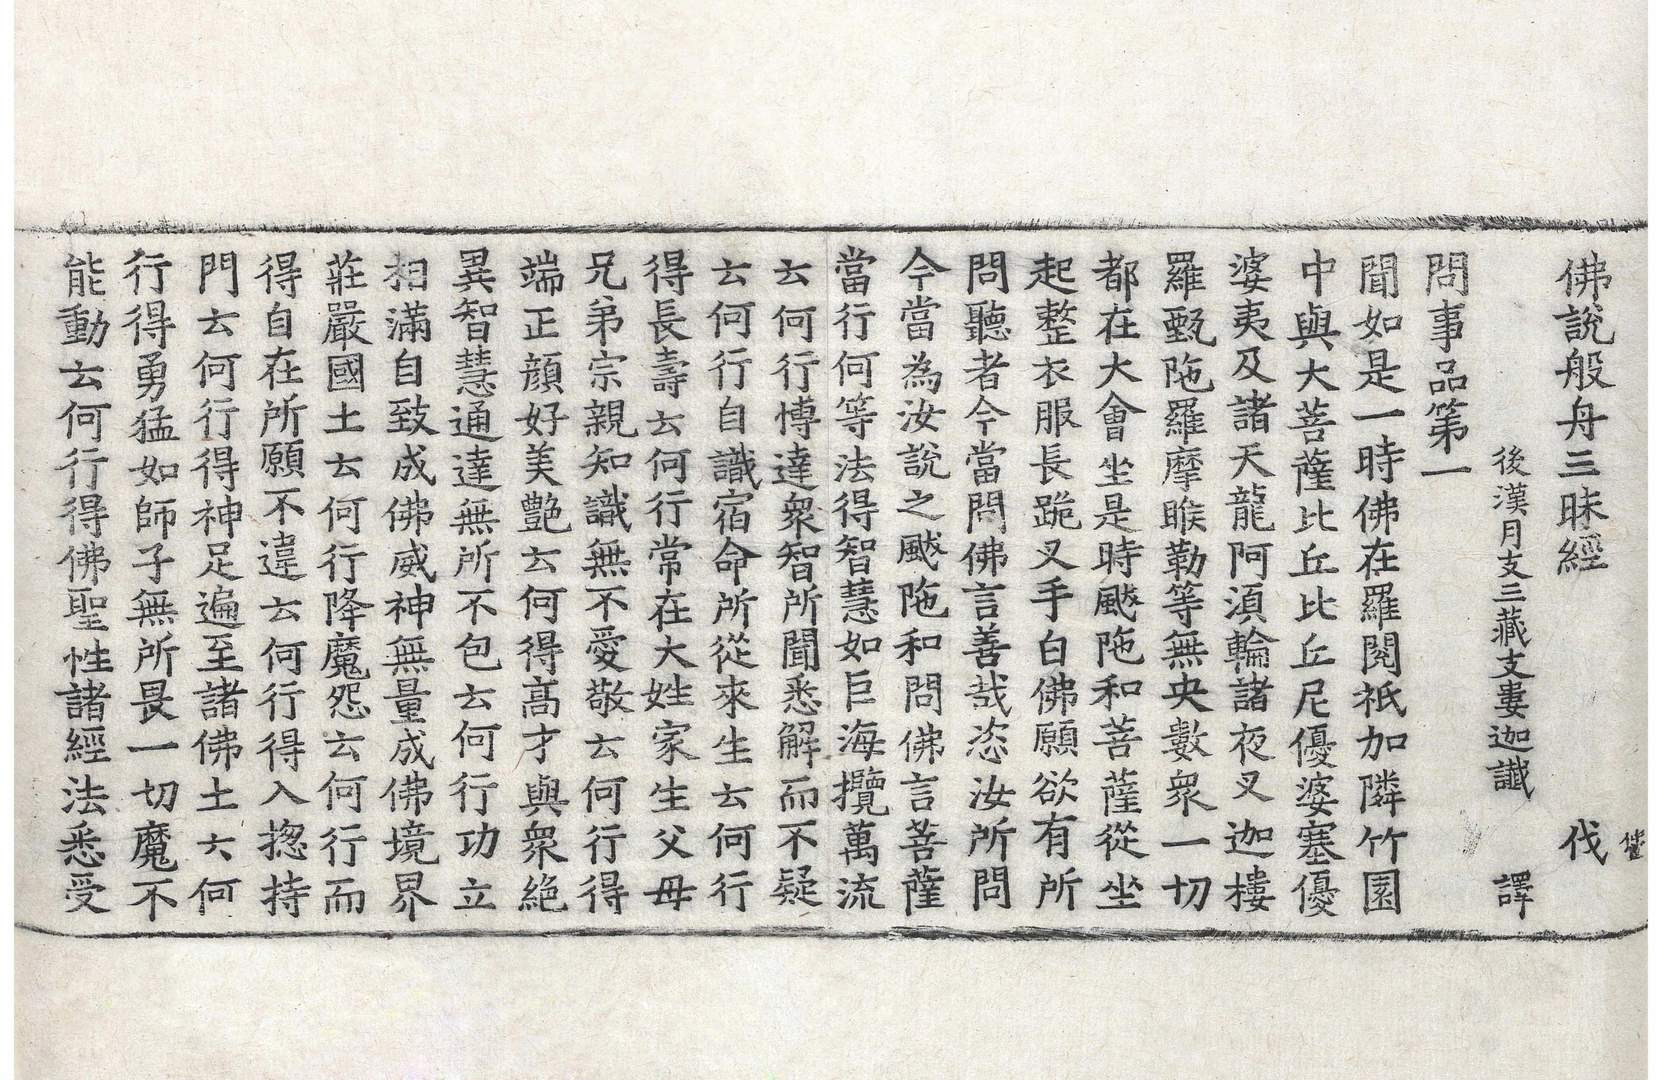 佛說般舟三昧經　伐
後漢月支三藏支婁迦讖　譯
問事品第一
聞如是一時佛在羅閱祇加隣竹園
中與大菩薩比丘比丘尼優婆塞優
婆夷及諸天龍阿湏輪諸夜叉迦樓
羅甄陁羅摩睺勒等無央數衆一切
都在大會坐是時颰陁和菩薩從坐
起整衣服長跪叉手白佛願欲有所
問聽者今當問佛言善哉恣汝所問
今當為汝說之颰陁和問佛言菩薩
當行何等法得智慧如巨海攬萬流
云何行博達衆智所聞悉解而不疑
云何行自識宿命所從來生云何行
得長壽云何行常在大姓家生父母
兄弟宗親知識無不愛敬云何行得
端正顔好美艷云何得髙才與衆絶
異智慧通達無所不包云何行功立
相滿自致成佛威神無量成佛境界
莊嚴國土云何行降魔怨云何行而
得自在所願不違云何行得入揔持
門云何行得神足遍至諸佛土云何
行得勇猛如師子無所畏一切魔不
能動云何行得佛聖性諸經法悉受